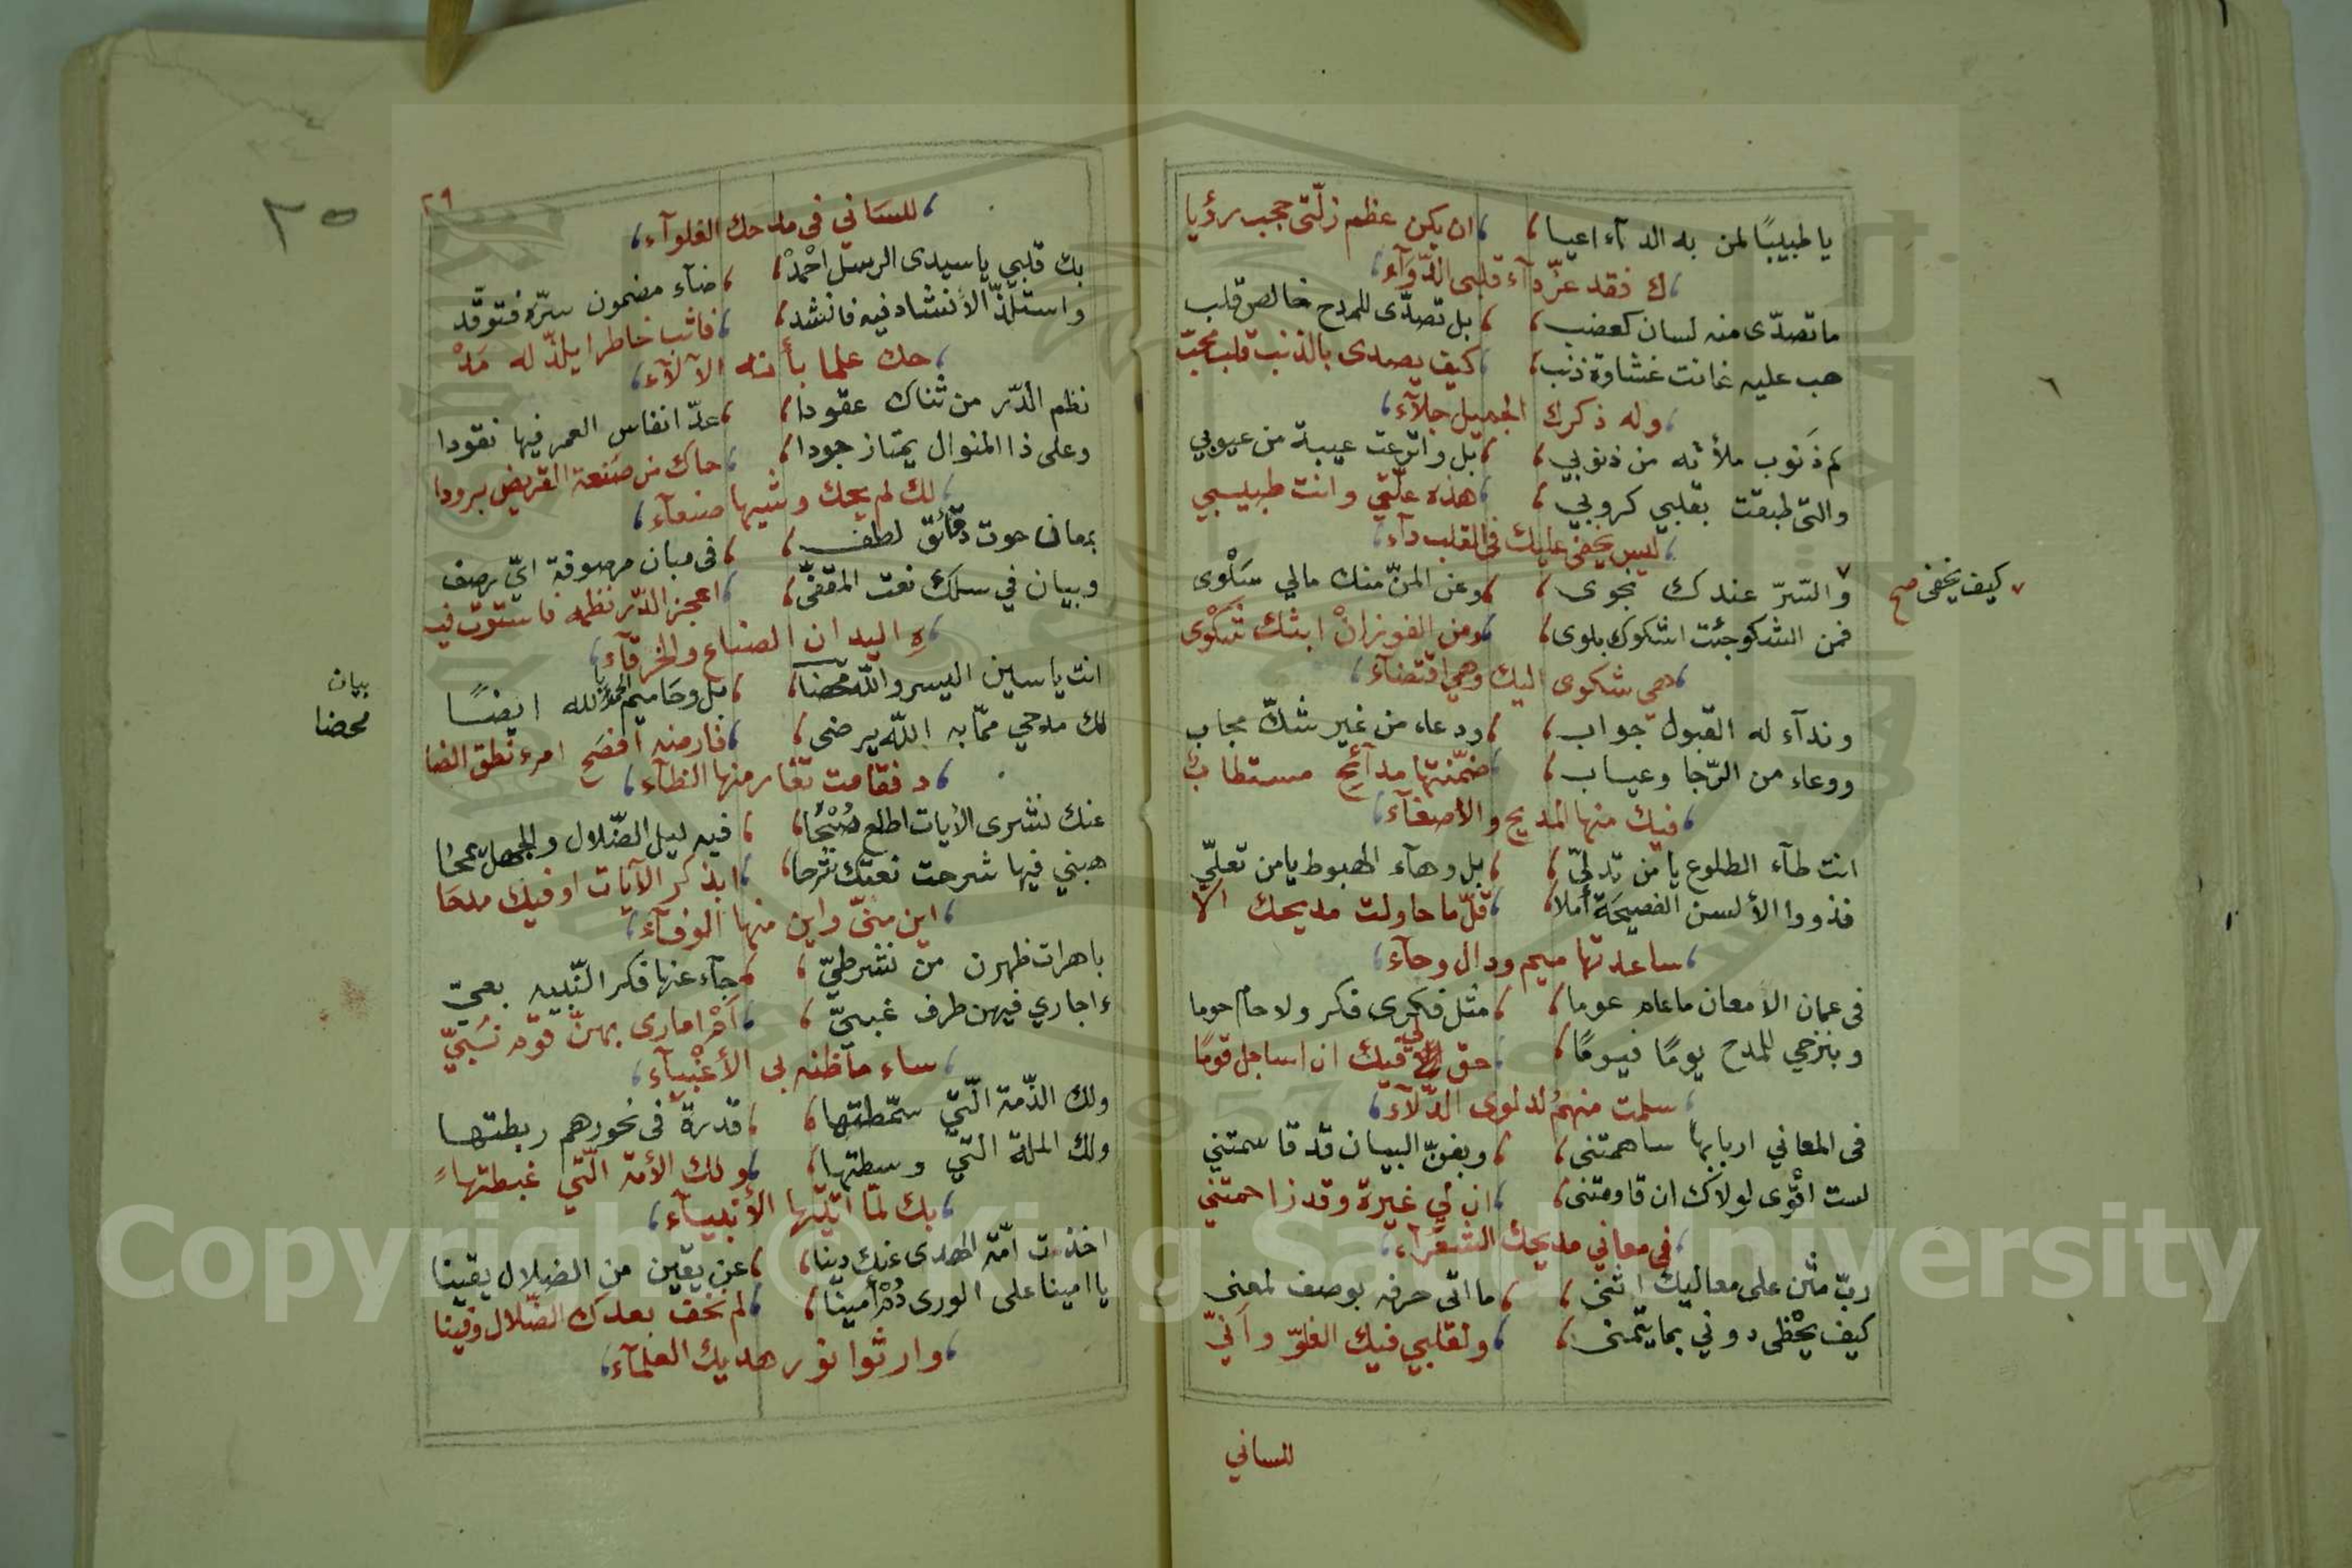 يا طبيبًا لمن به الدآء اعيا ، ان يكن عظم زلّتى حجب رؤيا
، ك فقد عزّ دآء قلبى الدّوآء ،
ما تصدّى منه لسان كعضب ، بل تصدّى للمدح خالص قلب
هب عليه غانت غشاوة ذنب ، كيف يصدى بالذنب قلب محبّ
، وله ذكرك الجميل جلآء ،
كم ذَنوب ملأته من ذنوبي ، بل واترعت عيبة من عيوبي
والتى طبقت بقلبي كروبي ، هذه علّتي وانت طبيبي
، ليس يخفى عليك فى القلب دآء ،
٧ والسّرّ عندك نجوى ، وعن المنّ منك مالي سَلْوى
٧ كيف يخفى صح
فمن الشكو جئت اشكوك بلوى ، ومن الفوز انْ ابثك شَكْوى
، هي شكوى اليك وهي اقتضآء ،
وندآء له القبول جواب ، ودعاء من غير شكّ مجاب
ووعاء من الرّجا وعياب ، ضمّنتها مدآئح مستطاب
، فيك منها المديح والأصغآء ،
انت طآء الطلوع يا من تدلّى ، بل وهآء الهبوط يا من تعلّى
فذووا الألسن الفصيحَة أملا ، قلّ ما حاولت مديحك الا
، ساعدتها ميم ودال وحآء ،
فى عمان الأمعان ما عام عوما ، مثل فكرى فكر ولا حام حوما
وبنزحي للمدح يومًا فيومًا ، حق لي فيك ان اساجل قومًا
، سلمت منهمُ لدلوى الدّلآء ،
فى المعاني اربابها ساهمتنى ، وبفنّ البيان قد قاسمتني
لست أقوى لولاك ان قاومتنى ، ان لي غيرة وقد زاحمتني
، فى معاني مديحك الشعرآء ،
ربّ مثن على معاليك اثنى ، ما اتى حرفه بوصف لمعنى
كيف يحْظى دوني بما يتمنى ، ولقلبي فيك الغلوّ وأنّي
للساني
٢٩
٣٥
، للسَاني فى مدحك الغلوآء ،
بك قلبي يا سيدى الرسل احْمدْ ، ضآء مضمون سرّه فتوقّد
واستلذّ الأنشاد فيه فانشد ، فاثب خاطرا يلذّ له مَدْ
، حك علما بأنه الآلآء ،
نظم الدّر من ثناك عقودا ، عدّ انفاس العمر فيها نقودا
وعلى ذا المنوال يمتاز جودا ، حاك من صَنعة القريض برودا
، لك لم يحك وشيها صنعآء ،
بمعان حوت دقآئق لطف ، فى مبان مرصوفة ايّ رصف
وبيان في سلك نعت المقفّى ، اعجز الدّر نظمه فاستوت فيـ
، ـه اليدان الصناع والخرقآء ،
انت ياسين اليسر والله محضا ، بل وحَاميم الحمد لله ايضًا
بيان
محضا
لك مدحي ممّا به الله يرضى ، فارضه افصَح امرء نطق الضا
، د فقامت تغار منها الظآء ،
عنك نشرى الأيات اطلع صُبْحًا ، فيه ليل الضّلال والجهل يمحا
هبني فيها شرحت نعتك شرحا ، ابذكر الآيات اوفيك مدحَا
، اين منّى واين منها الوفآء ،
باهرات ظهرن من نشر طيّ ، جآء عنها فكر النّبيه بعيّ
ءاجاري فيهن طرف غبيّ ، أمْ امارى بهنّ قوم نَبيّ
، ساء ما ظنه بي الأغْبيآء ،
ولك الذّمة الّتي سمّطتها ، قدرة فى نحورهم ربطتها
ولك الملة الّتي وسطتها ، ولك الأمة الّتي غبطتها
، بك لمّا اتيّتها الأنبيآء ،
اخذت امّة الهدى عنك دينا ، عن يقين من الضلال يقينا
يا امينا على الورى دُمْ أمينّا ، لم نخف بعدك الضّلال وفينا
، وارثوا نور هديك العلمآء ،